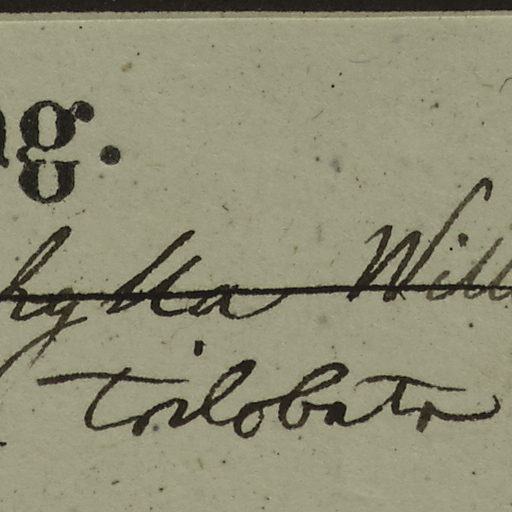 ng.
hylla Will
Trilobata